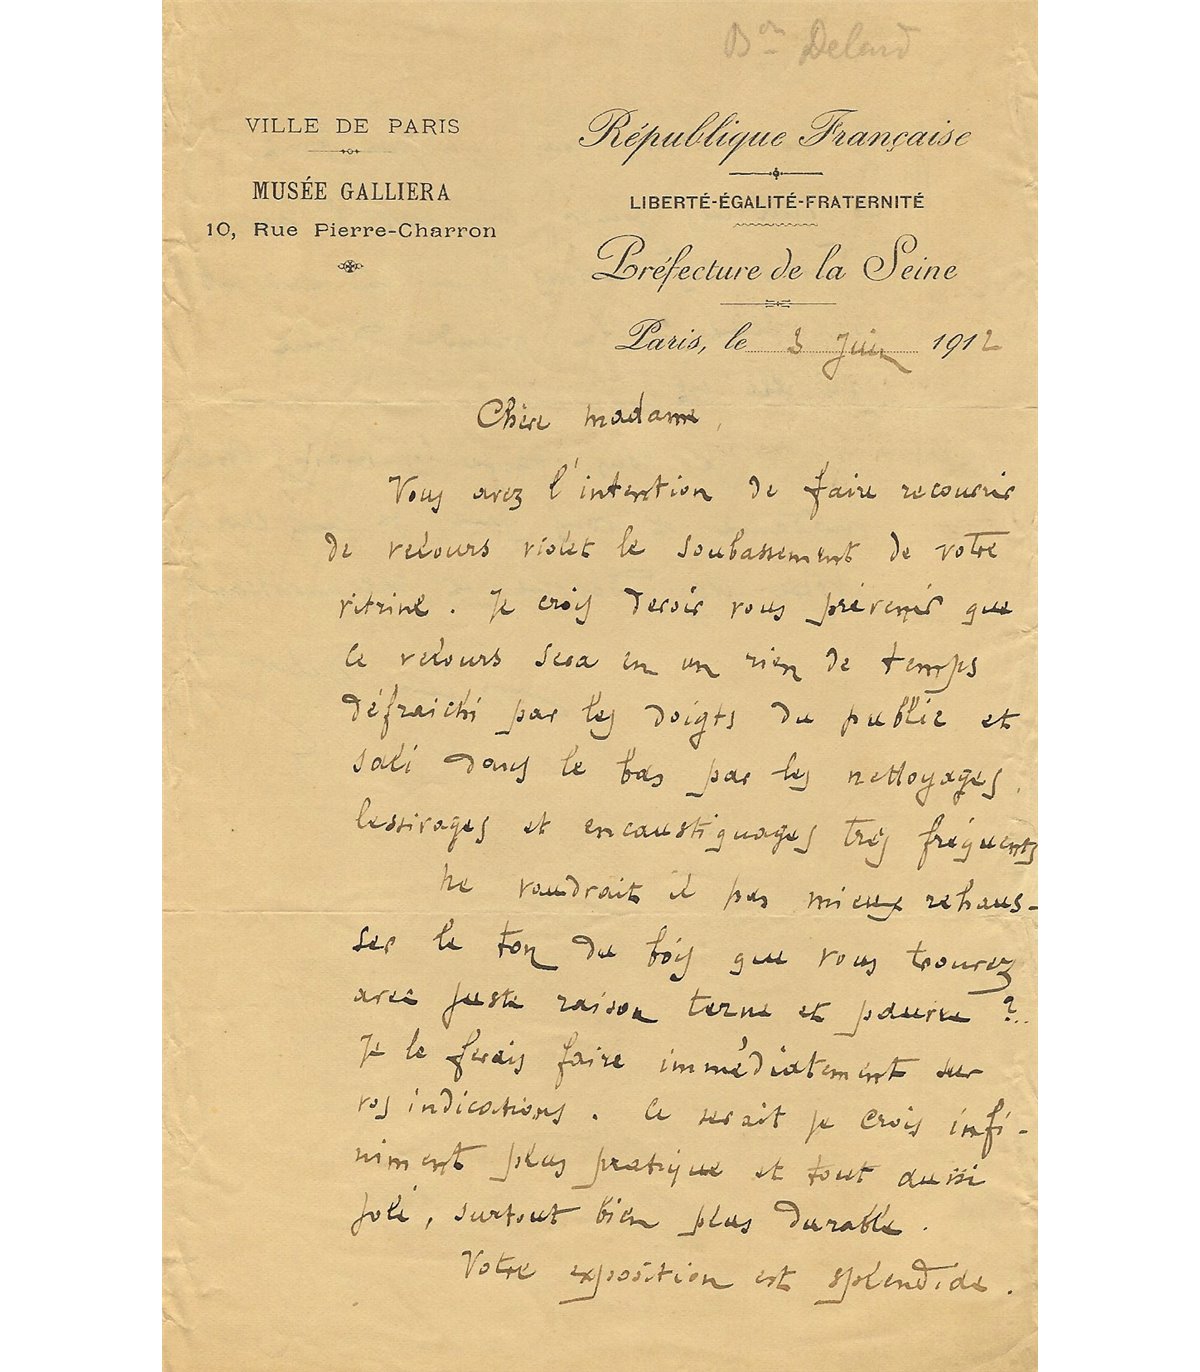 Bon Delard
VILLE DE PARIS
MUSÉE GALLIERA
10, Rue Pierre-Charron
République Française
LIBERTÉ-ÉGALITÉ-FRATERNITÉ
Préfecture de la Seine
Paris, le 3 Juin 1912
Chère madame,
Vous avez l'intention de faire recouvrir
de velours violet le soubassement de votre
vitrine. Je crois devoir vous prévenir que
ce velours sera en un rien de temps
défraichi par les doigts du public et
sali dans le bas par les nettoyages,
lessivages et encaustiquages très fréquents
Ne vaudrait il pas mieux rehaus-
ser le ton du bois que vous trouvez
avec juste raison terne et pauvre ?..
Je le ferais faire immédiatement sur
vos indications. Ce serait je crois infi-
niment plus pratique et tout aussi
joli, surtout bien plus durable.
Votre exposition est splendide.